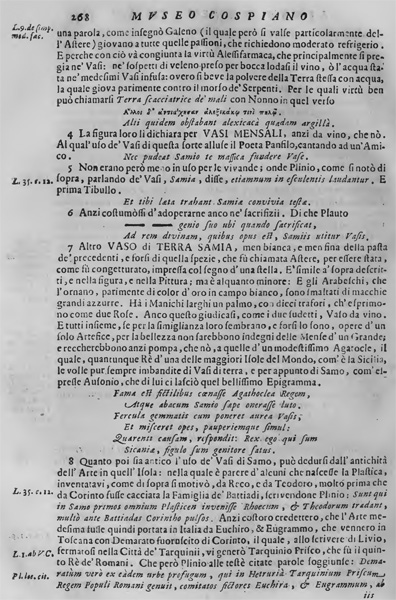 268 MVSEO COSPIANO
L. 9. de simp.
med. fac.
una parola, come insegnò Galeno (il quale però si valse particolarmente del-
l'Astere) giovano a tutte quelle passioni, che richiedono moderato refrigerio.
E perche con ciò và congiunta la virtù Alessifarmaca, che principalmente si pre-
gia ne' Vasi: ne' sospetti di veleno preso per bocca lodasi il vino, ò l'acqua sta-
ta ne' medesimi Vasi infusa: overo si beve la polvere della Terra stessa con acqua,
la quale giova parimente contro il morso de' Serpenti. Per le quali virtù ben
può chiamarsi Terra scacciatrice de' mali con Nonno in quel verso
Alti quidem obstabant alexicacta quadam argilla.
4 La figura loro li dichiara per VASI MENSALI, anzi da vino, che nò.
Al qual' uso de' Vasi di questa sorte alluse il Poeta Panfilo, cantando ad un' Ami-
co. Nec pudeat Samio te massica fundere Vase.
5 Non erano però meno in uso per le vivande; onde Plinio, come si notò di
L. 35. c. 12.
sopra, parlando de' Vasi, Samia, disse, etiamnum in esculentis laudantur. E
prima Tibullo.
Et tibi lata trahant Samia convivia testa.
6 Anzi costumossi d'adoperarne anco ne' sacrifizii. Di che Plauto
genio suo ubi quando sacrificat,
Ad rem divinam, quibus opus est, Samiis utitur Vasis.
7 Altro VASO di TERRA SAMIA, men bianca, e men fina della pasta
de' precedenti, e forsi di quella spezie, che fù chiamata Astere, per essere stata,
come fù congetturato, impressa col segno d'una stella. E' simile a' sopra descrit-
ti, e nella figura, e nella Pittura; ma è alquanto minore: E gli Arabeschi, che
l'ornano, parimente di color d'oro in campo bianco, sono smaltati di macchie
grandi azzurre. Hà i Manichi larghi un palmo, con dieci trafori, ch' esprimo-
no come due Rose. Anco questo giudicasi, come i due sudetti, Vaso da vino.
E tutti insieme, se per la simiglianza loro sembrano, e forsi lo sono, opere d'un
solo Artefice, per la bellezza non sarebbono indegni delle Mense d'un Grande;
e recherebbono anzi pompa, che nò, a quelle d'un modestissimo Agatocle, il
quale, quantunque Rè d'una delle maggiori Isole del Mondo, com' è la Sicilia,
le volle pur sempre imbandite di Vasi di terra, e per appunto di Samo, com' ci e-
spresse Ausonio, che di lui ci lasciò quel bellissimo Epigramma.
Fama est fictilibus cænasse Agathoclea Regem,
Atque abacum Samio sæpe onerasse luto.
Fercula gemmatis cum poneret aurea Vasis,
Et misceret opes, pauperiemque simul:
Quærenti causam, respondit: Rex ego qui sum
Sicaniæ, figulo sum genitore satus.
8 Quanto poi sia antico l'uso de' Vasi di Samo, può dedursi dall' antichità
dell' Arte in quell' Isola: nella quale è parere d'alcuni che nascesse la Plastica,
inventatavi, come di sopra si motivò, da Reco, e da Teodoro, molto prima che
L. 35. c. 12.
da Corinto fusse cacciata la Famiglia de' Battiadi, scrivendone Plinio: Sunt qui
in Samo primos omnium Plasticen invenisse Rhoecum, & Theodorum tradant,
multò ante Battiadas Corintho pulsos. Anzi costoro credettero, che l'Arte me-
desima fusse quindi portata in Italia da Euchiro, & Eugrammo, che vennero in
Toscana con Demarato fuoruscito di Corinto, il quale, allo scrivere di Livio,
L. 1. ab V. C.
fermatosi nella Città de' Tarquinii, vi generò Tarquinio Prisco, che fù il quin-
to Rè de' Romani. Che però Plinio alle testè citate parole soggiunse: Dema-
Pl. loc. cit.
ratum verò ex eadem urbe profugum, qui in Hetruria Tarquinium Priscum
Regem Populi Romani genuit, comitatos fictores Euchira, & Eugrammum, ab
iis